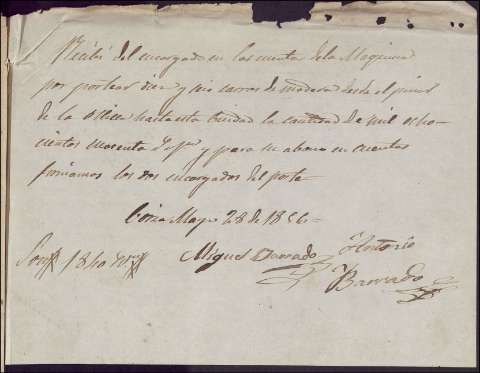 Recibí del encargado en la cuenta de la Maquina
por portear diez y seis carros de madera desde el pinar
de la hasta esta ciudad la cantidad de mil ocho-
cientos y para su abono en cuentas
firmamos los dos encargados del porte
Mayo 28 de 1856
Son 18 rs
Miguel Barrado Antonio
Barrado